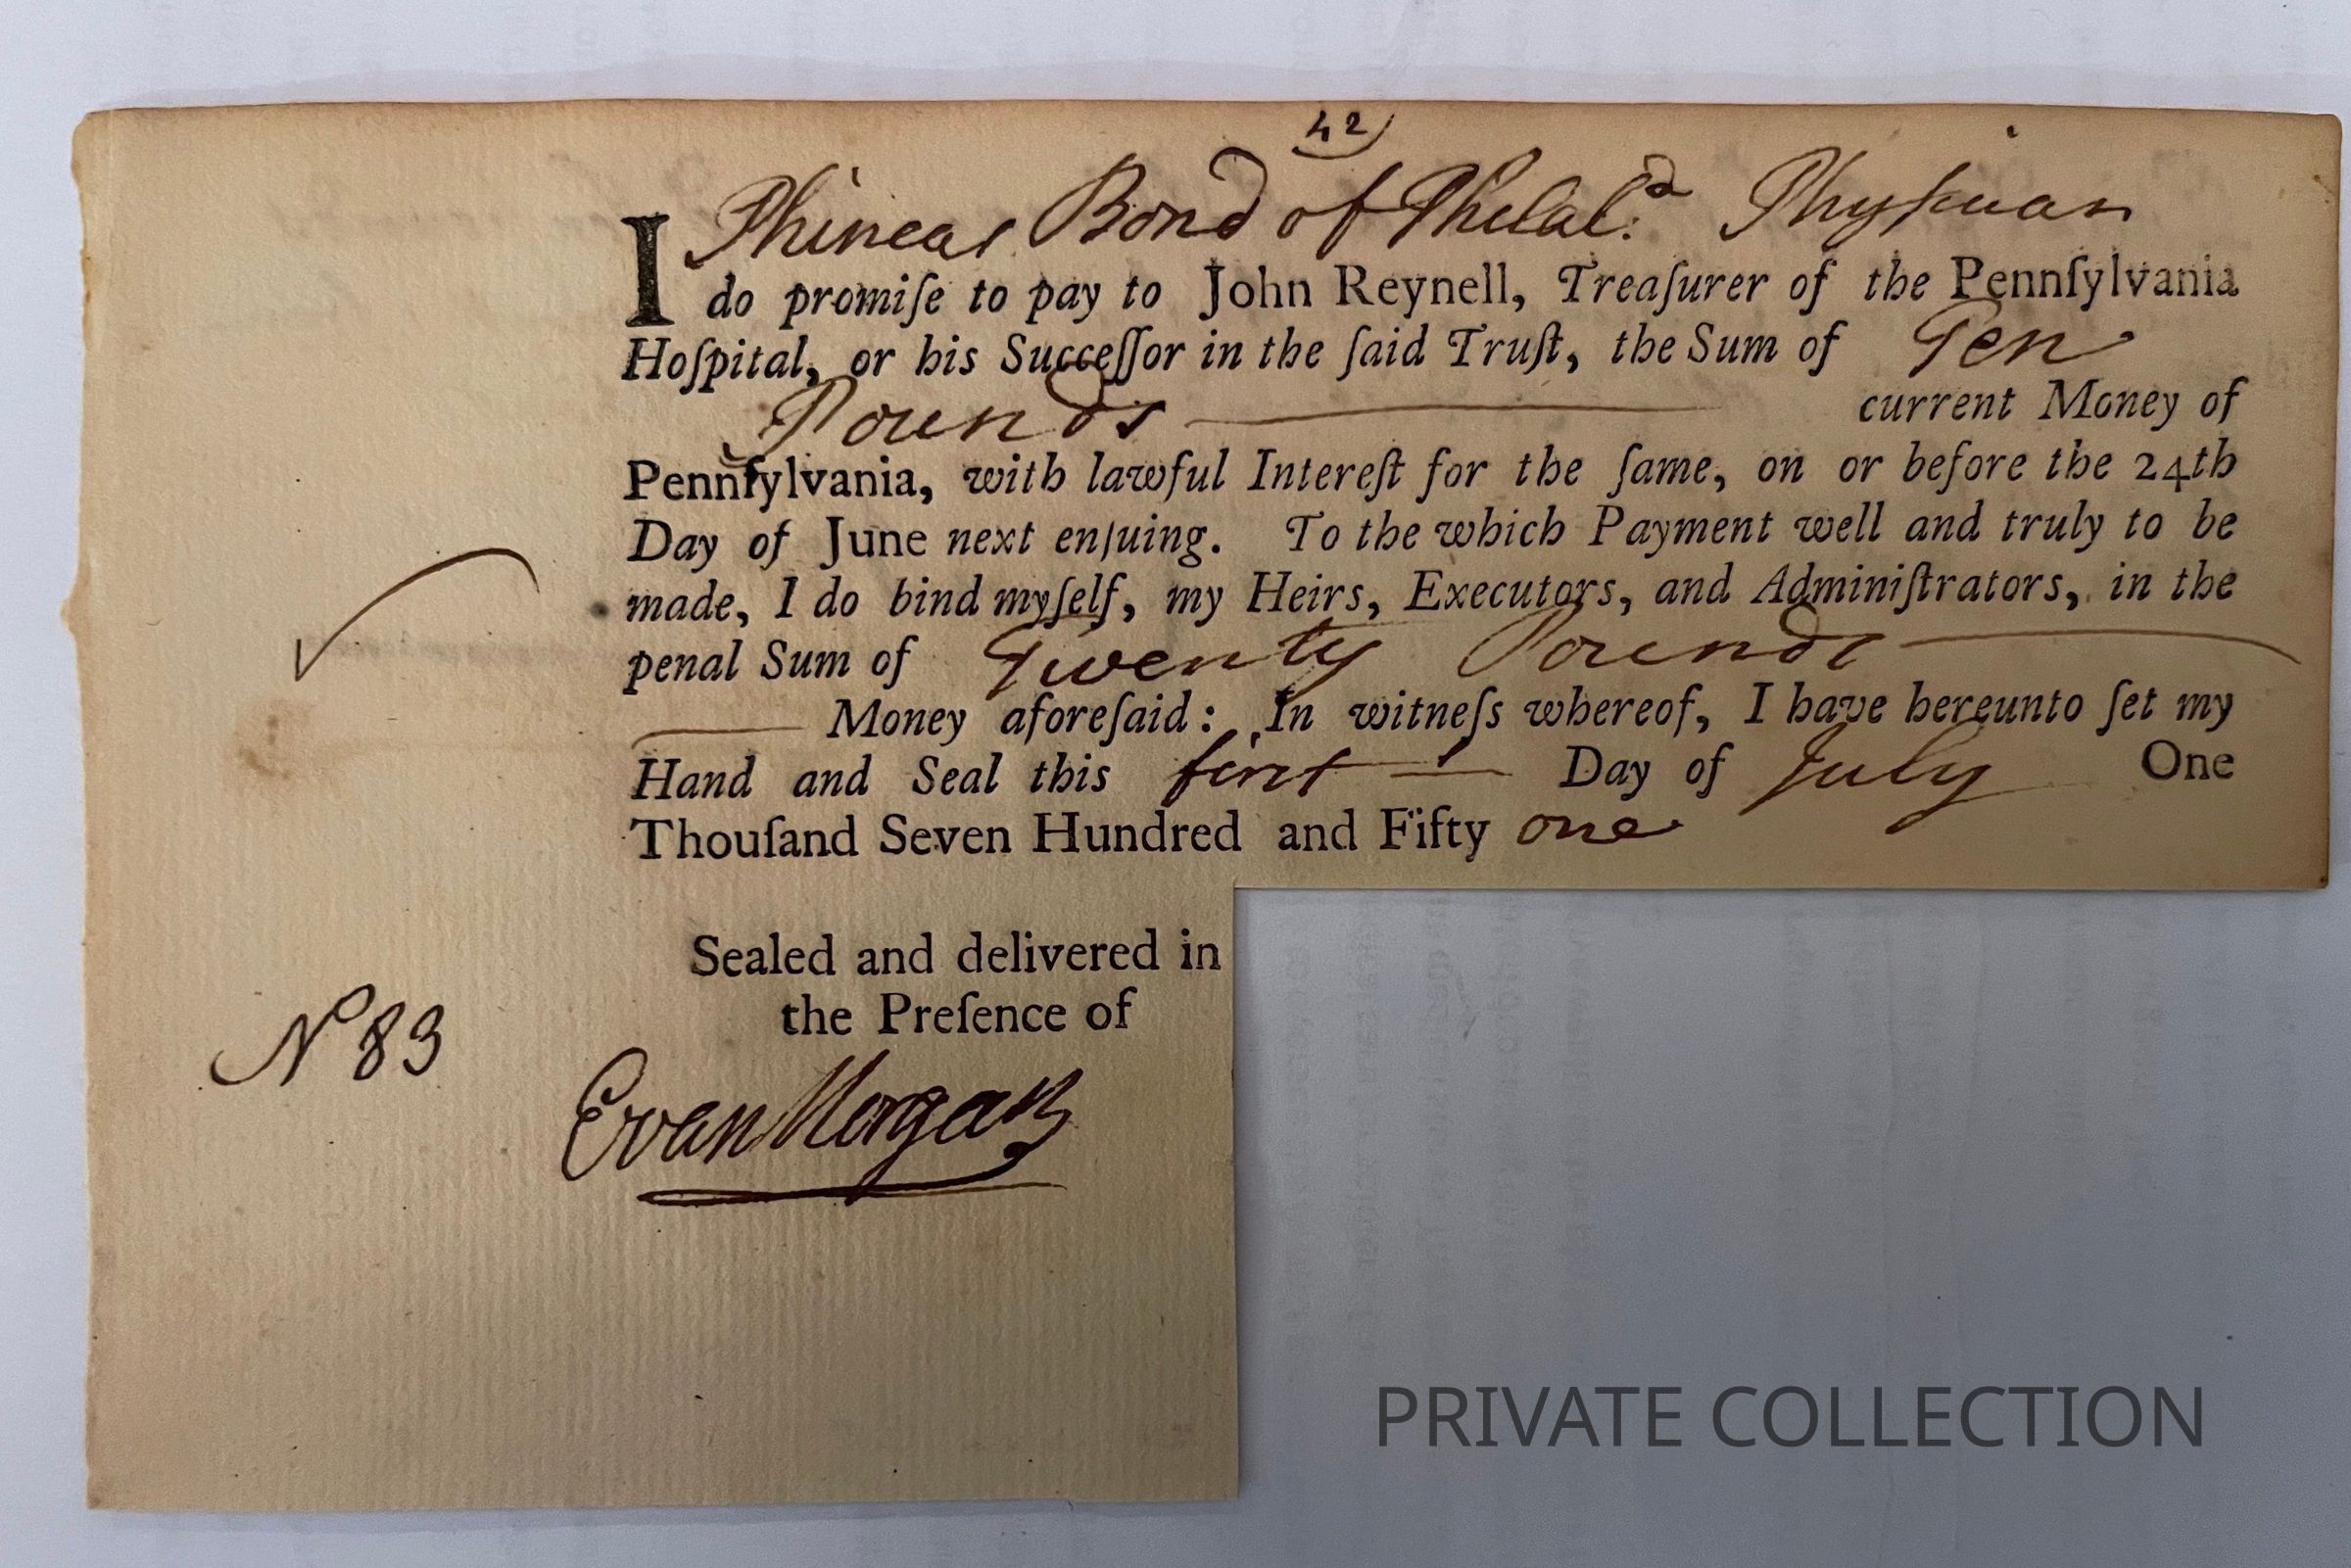 42
Phineas Bond of Philad.a Physician
I do promiſe to pay to John Reynell, Treaſurer of the Pennſylvania
Hoſpital, or his Succeſſor in the ſaid Truſt, the Sum of Ten
Pounds current Money of
Pennſylvania, with lawful Intereſt for the ſame, on or before the 24th
Day of June next enſuing. To the which Payment well and truly to be
made, I do bind myſelf, my Heirs, Executors, and Adminiſtrators, in the
penal Sum of Twenty Pounds
Money aforeſaid: In witneſs whereof, I have hereunto ſet my
Hand and Seal this first Day of July One
Thouſand Seven Hundred and Fifty one
Sealed and delivered in
the Preſence of
No 83
Evan Morgan
PRIVATE COLLECTION